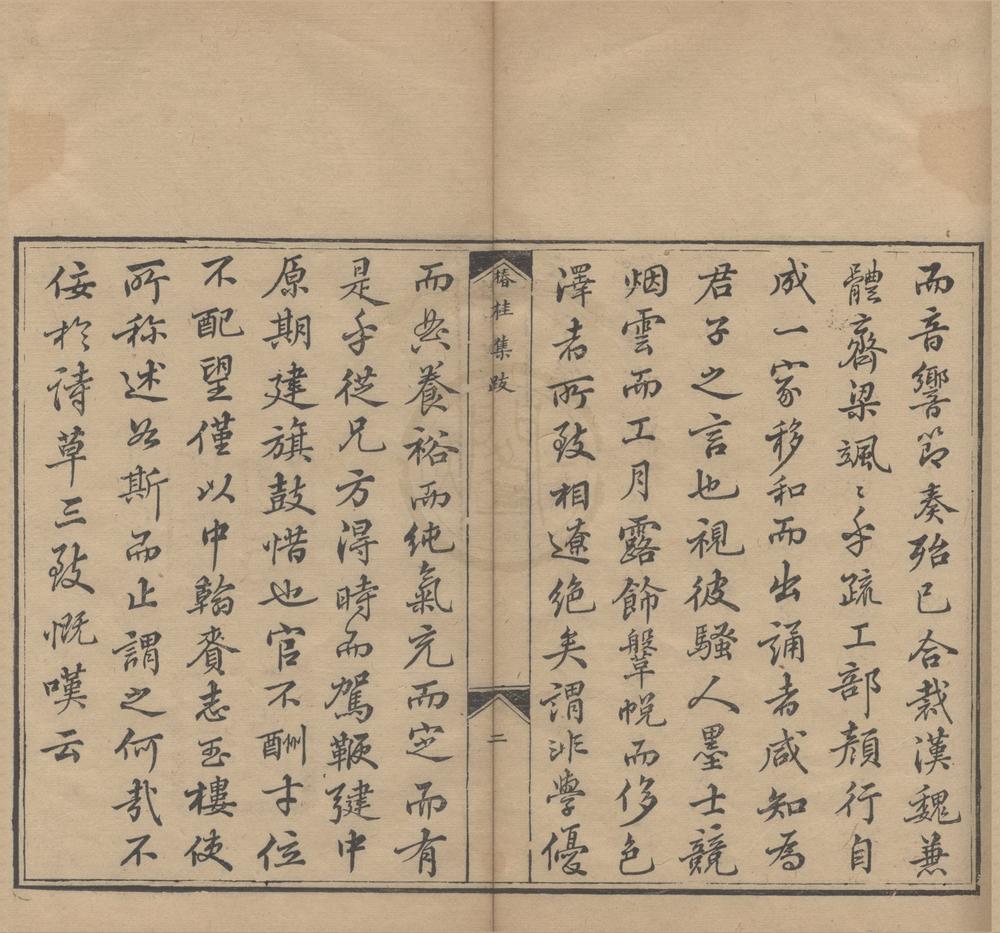 而音響節奏殆已合裁漢魏兼
體齊梁颯〻乎疏工部顏行自
成一家移和而出誦者咸知為
君子之言也視彼騷人墨士競
烟雲而工月露飾鞶帨而侈色
澤者所致相遼絕矣謂非學優
椿桂集跋
二
而典養裕而純氣充而定而有
是乎從兄方得時而駕鞭弭中
原期建旗鼓惜也官不酬才位
不配望僅以中翰賫志玉樓使
所称述如斯而止謂之何哉不
佞於詩草三致慨嘆云